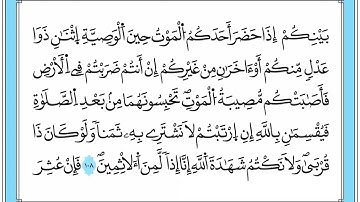 بَيْنِكُمْ إِذَا حَضَرَ أَحَدَكُمُ ٱلْمَوْتُ حِينَ ٱلْوَصِيَّةِ ٱثْنَـٰنِ ذَوَا
عَدْلٍ مِّنكُمْ أَوْ ءَاخَرَانِ مِنْ غَيْرِكُمْ إِنْ أَنتُمْ ضَرَبْتُمْ فِى ٱلْأَرْضِ
فَأَصَـٰبَتْكُم مُّصِيبَةُ ٱلْمَوْتِ ۚ تَحْبِسُونَهُمَا مِنۢ بَعْدِ ٱلصَّلَوٰةِ
فَيُقْسِمَانِ بِٱللَّهِ إِنِ ٱرْتَبْتُمْ لَا نَشْتَرِى بِهِۦ ثَمَنًا وَلَوْ كَانَ ذَا
قُرْبَىٰ ۙ وَلَا نَكْتُمُ شَهَـٰدَةَ ٱللَّهِ إِنَّآ إِذًا لَّمِنَ ٱلْـَٔاثِمِينَ ١٠٨ فَإِنْ عُثِرَ